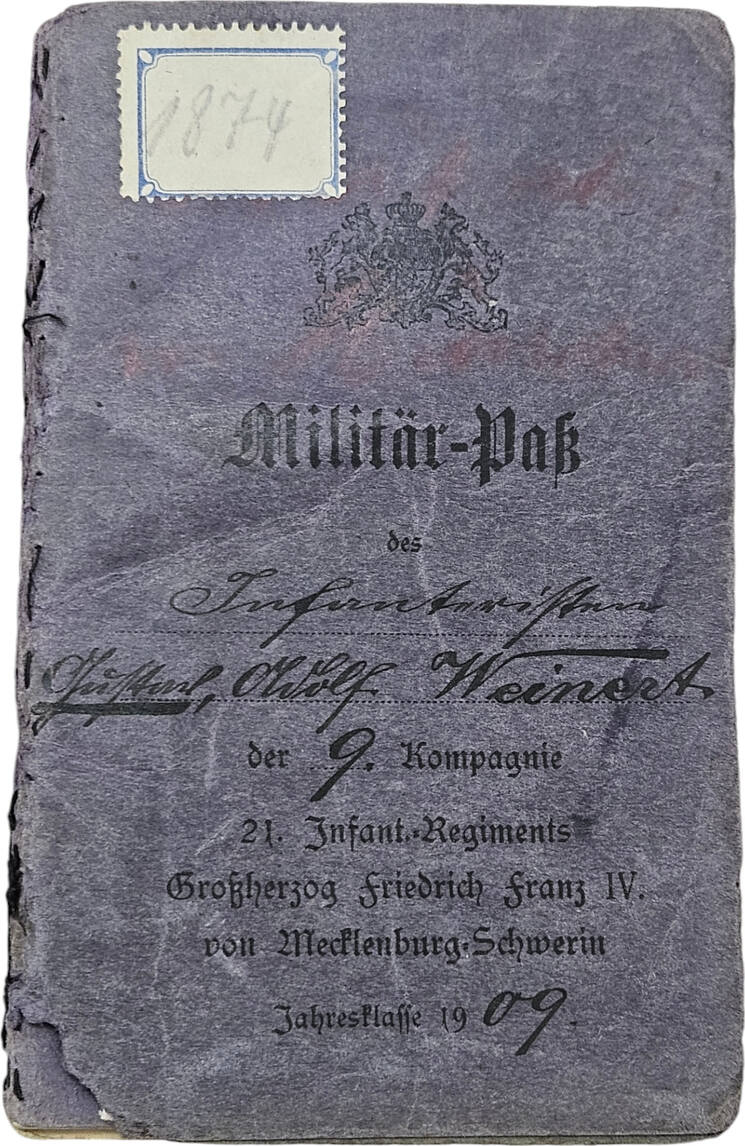 1874
Militär-Paß
des
Infanteristen
Gustav, Adolf Weinert
der 9. Kompagnie
21. Infant.-Regiments
Großherzog Friedrich Franz IV.
von Mecklenburg-Schwerin
Jahresklasse 1909.